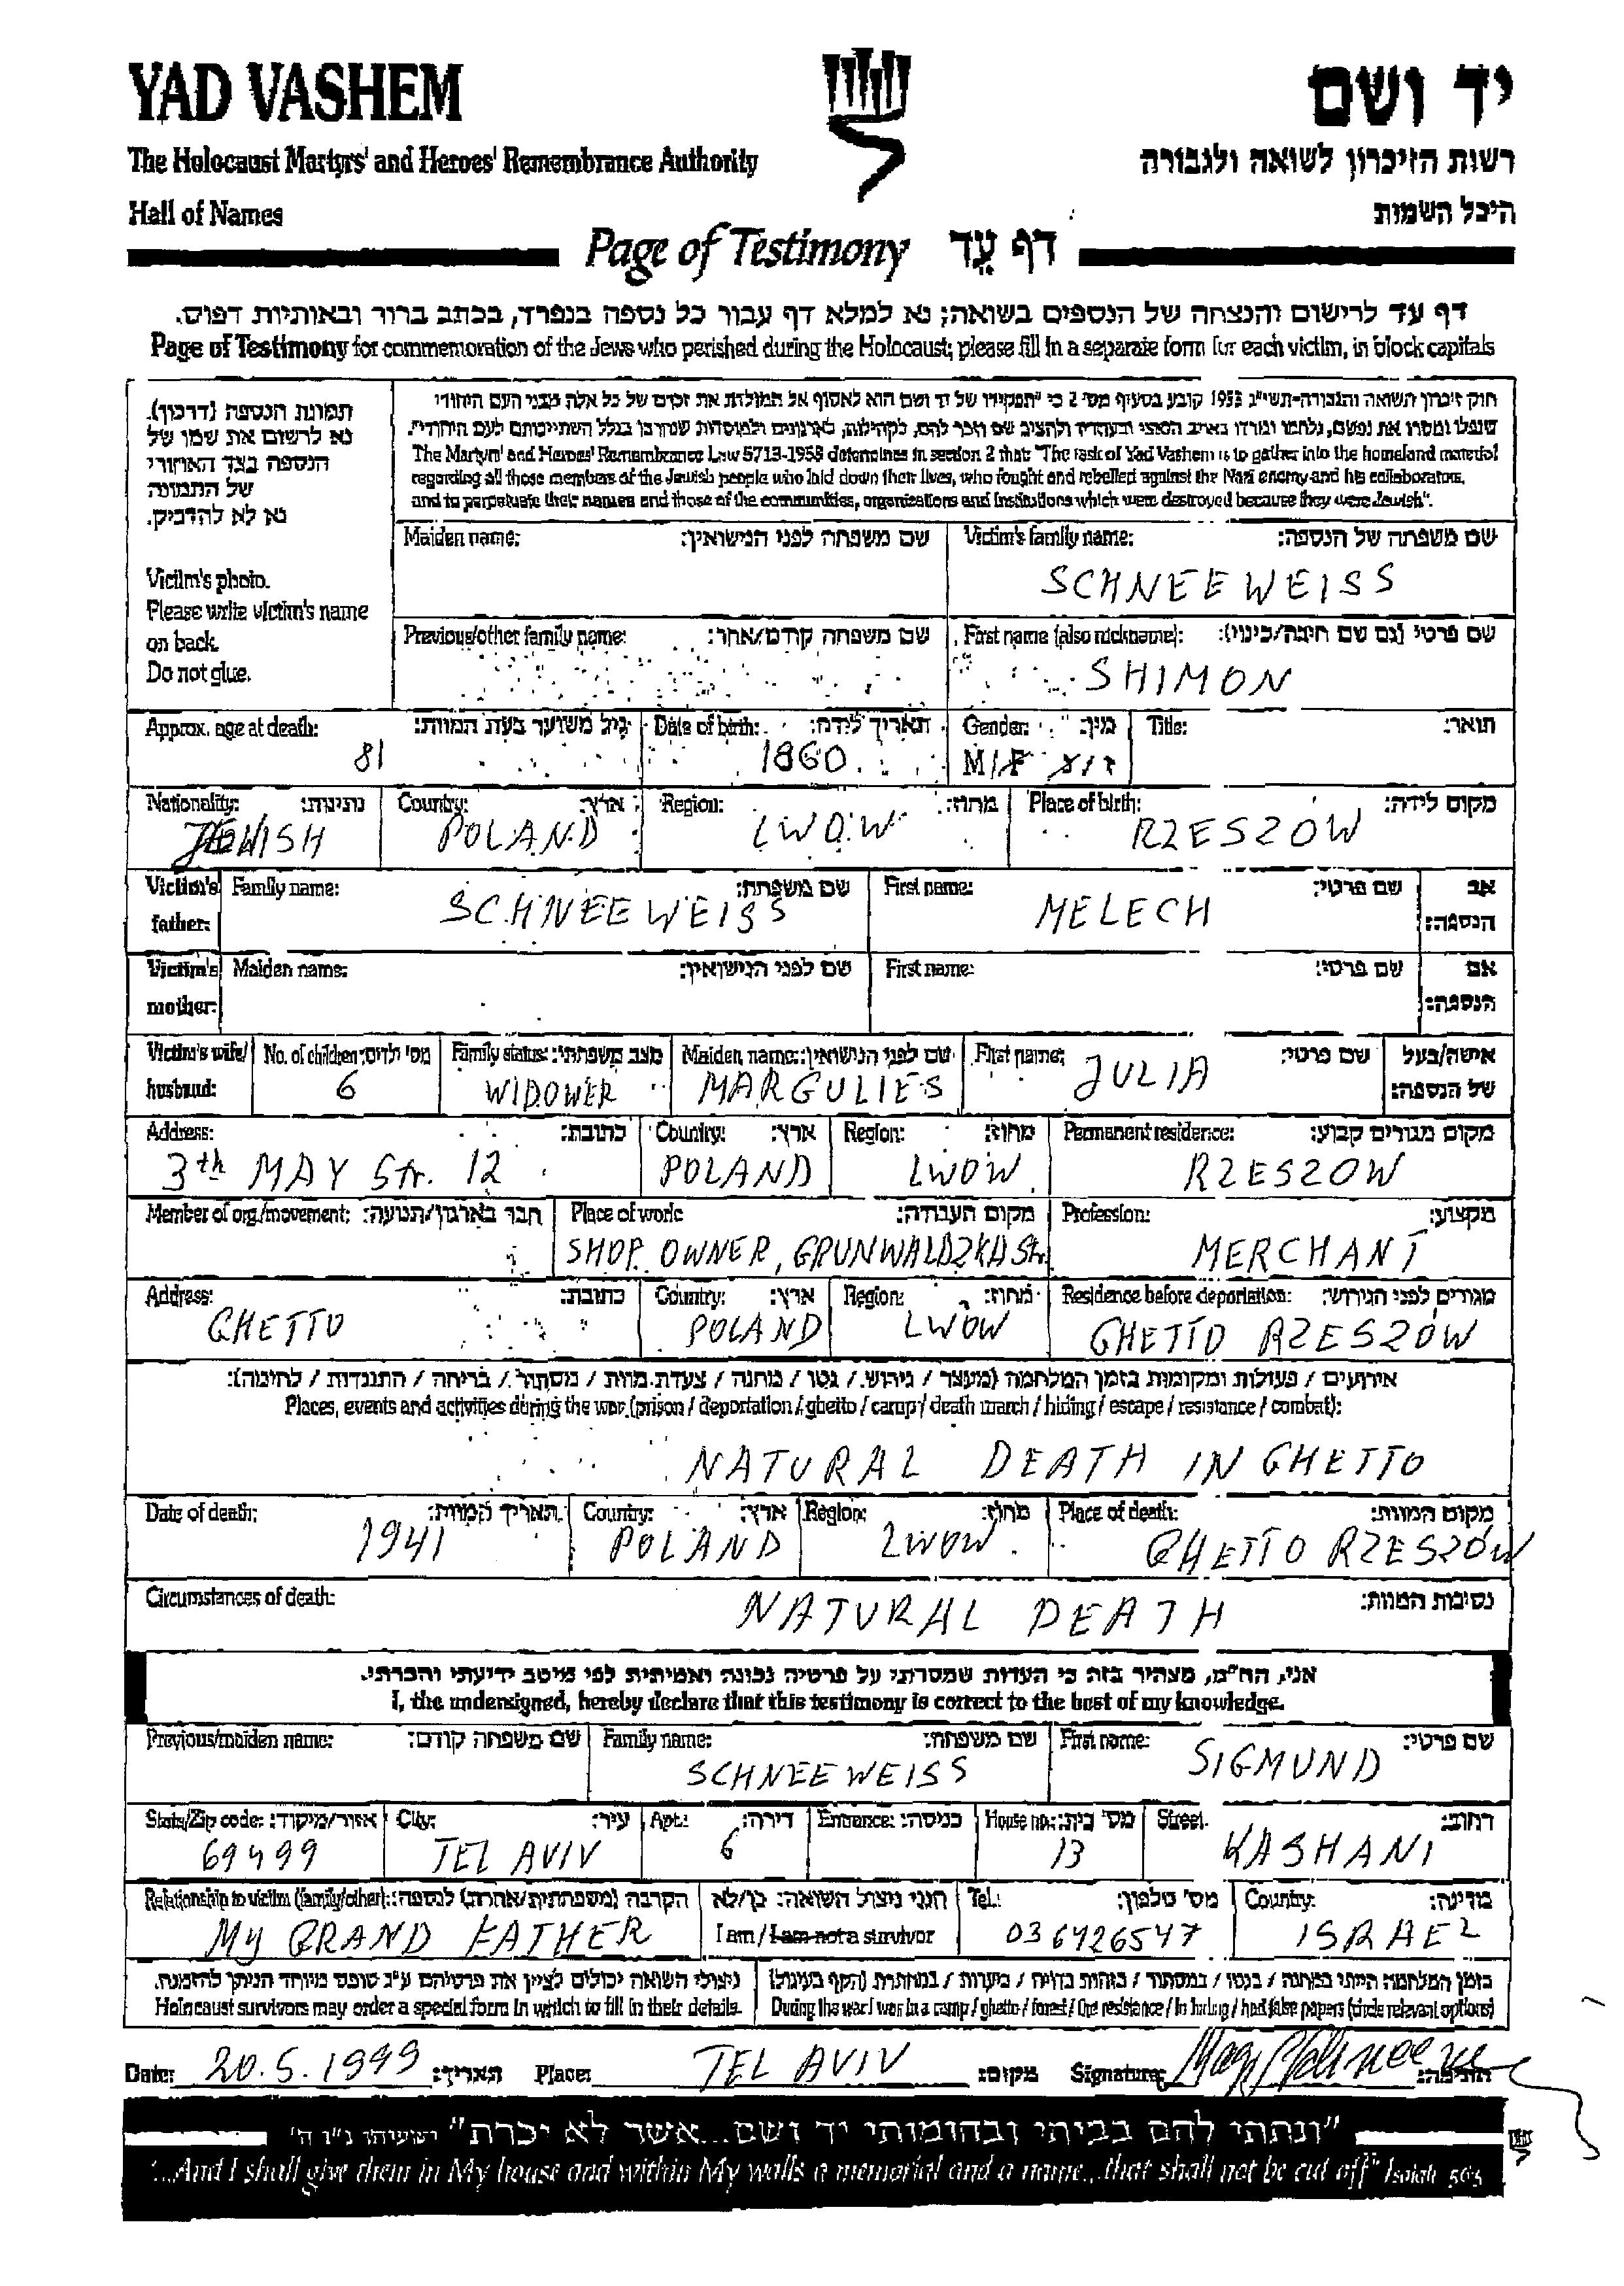 YAD VASHEM
יד ושם
The Holocaust Martyrs' and Heroes' Remembrance Authority
רשות הזיכרון לשואה ולגבורה
Hall of Names
היכל השמות
Page of Testimony דף עֵד
דף עד לרישום והנצחה של הנספים בשואה; נא למלא דף עבור כל נספה בנפרד, בכתב ברור ובאותיות דפוס.
Page of Testimony for commemoration of the Jews who perished during the Holocaust; please fill in a separate form for each victim, in block capitals
תמונת הנספה (דרכון).
נא לרשום את שמו של
הנספה בצד האחורי
של התמונה
נא לא להדביק.
Victim's photo.
Please write victim's name
on back.
Do not glue.
חוק זיכרון השואה והגבורה-תשי"ג 1953 קובע בסעיף מס' 2 כי "תפקידו של יד ושם הוא לאסוף אל המולדת את זכרם של כל אלה מבני העם היהודי
שנפלו ומסרו את נפשם, נלחמו ומרדו באויב הנאצי ובעוזריו ולהציב שם וזכר להם, לקהילות, לארגונים ולמוסדות שנחרבו בגלל השתייכותם לעם היהודי".
The Martyrs' and Heroes' Remembrance Law 5713-1953 determines in section 2 that: "The task of Yad Vashem is to gather into the homeland material
regarding all those members of the Jewish people who laid down their lives, who fought and rebelled against the Nazi enemy and his collaborators,
and to perpetuate their names and those of the communities, organizations and institutions which were destroyed because they were Jewish".
Maiden name: שם משפחה לפני הנישואין: Victim's family name: שם משפחה של הנספה:
SCHNEEWEISS
Previous/other family name: שם משפחה קודם/אחר: First name (also nickname): שם פרטי (גם שם חיבה/כינוי):
SHIMON
Approx. age at death: גיל משוער בעת המוות: Date of birth: תאריך לידה: Gender: מין: Title: תואר:
81 1860 M/F ז/נ
Nationality: נתינות: Country: ארץ: Region: מחוז: Place of birth: מקום לידה:
JEWISH POLAND LWOW RZESZOW
Victim's father: Family name: שם משפחה: First name: שם פרטי: אב הנספה:
SCHNEEWEISS MELECH
Victim's mother: Maiden name: שם לפני הנישואין: First name: שם פרטי: אם הנספה:
Victim's wife/husband: No. of children: מס' ילדים: Family status: מצב משפחתי: Maiden name: שם לפני הנישואין: First name: שם פרטי: אישה/בעל של הנספה:
6 WIDOWER MARGULIES JULIA
Address: כתובת: Country: ארץ: Region: מחוז: Permanent residence: מקום מגורים קבוע:
3th MAY Str. 12 POLAND LWOW RZESZOW
Member of org./movement: חבר בארגון/תנועה: Place of work: מקום העבודה: Profession: מקצוע:
SHOP OWNER, GRUNWALDZKA Str. MERCHANT
Address: כתובת: Country: ארץ: Region: מחוז: Residence before deportation: מגורים לפני הגירוש:
GHETTO POLAND LWOW GHETTO RZESZOW
אירועים / פעולות ומקומות בזמן המלחמה (מעצר / גירוש / גטו / מחנה / צעדת מוות / מסתור / בריחה / התנגדות / לחימה):
Places, events and activities during the war (prison / deportation / ghetto / camp / death march / hiding / escape / resistance / combat):
NATURAL DEATH IN GHETTO
Date of death: תאריך המוות: Country: ארץ: Region: מחוז: Place of death: מקום המוות:
1941 POLAND LWOW GHETTO RZESZOW
Circumstances of death: נסיבות המוות:
NATURAL DEATH
אני, הח"מ, מצהיר בזה כי העדות שמסרתי על פרטיה נכונה ואמיתית לפי מיטב ידיעתי והכרתי.
I, the undersigned, hereby declare that this testimony is correct to the best of my knowledge.
Previous/maiden name: שם משפחה קודם: Family name: שם משפחה: First name: שם פרטי:
SCHNEEWEISS SIGMUND
State/Zip code: אזור/מיקוד: City: עיר: Apt.: דירה: Entrance: כניסה: House no.: מס' בית: Street: רחוב:
69499 TEL AVIV 6 13 KASHANI
Relationship to victim (family/other): הקרבה (משפחתית/אחרת) לנספה: הנני ניצול השואה: כן/לא Tel.: מס' טלפון: Country: מדינה:
MY GRAND FATHER I am / I am not a survivor 036426547 ISRAEL
ניצולי השואה יכולים לציין את פרטיהם ע"ג טופס מיוחד הניתן להזמנה.
Holocaust survivors may order a special form in which to fill in their details.
בזמן המלחמה הייתי במחנה / בגטו / במסתור / בזהות בדויה / ביערות / במחתרת (הקף בעיגול)
During the war I was in a camp / ghetto / forest / the resistance / in hiding / had false papers (circle relevant options)
Date: 20.5.1999 תאריך: Place: TEL AVIV מקום: Signature: חתימה:
"ונתתי להם בביתי ובחומותי יד ושם...אשר לא יכרת" ישעיהו נ"ו ה'
"...And I shall give them in My house and within My walls a memorial and a name...that shall not be cut off" Isaiah 56:5